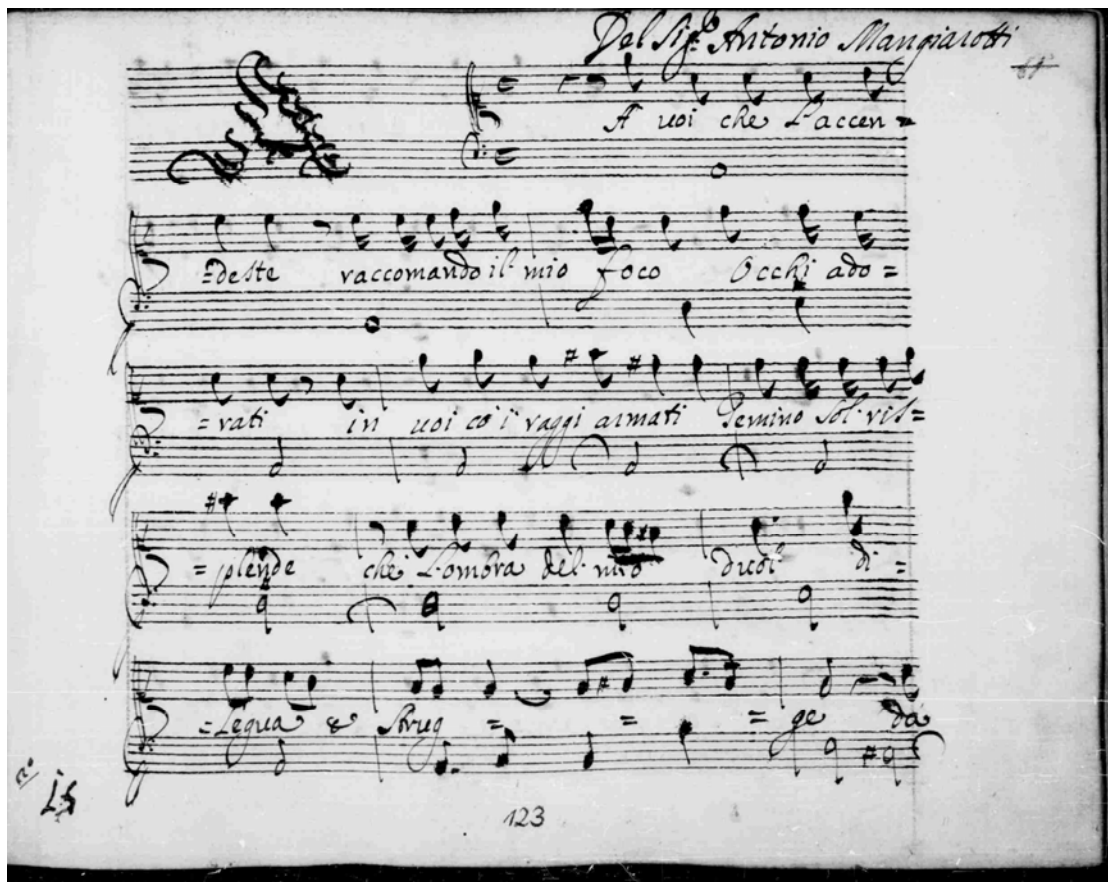 Del Sig.re Antonio Mangiarotti
A voi che l'accen=
=deste raccomando il mio foco Occhi ado=
=rati in voi co i raggi armati Per mino sol ris=
=plende che l'ombra del mio duol di=
=legua e strug = = = ge da
123